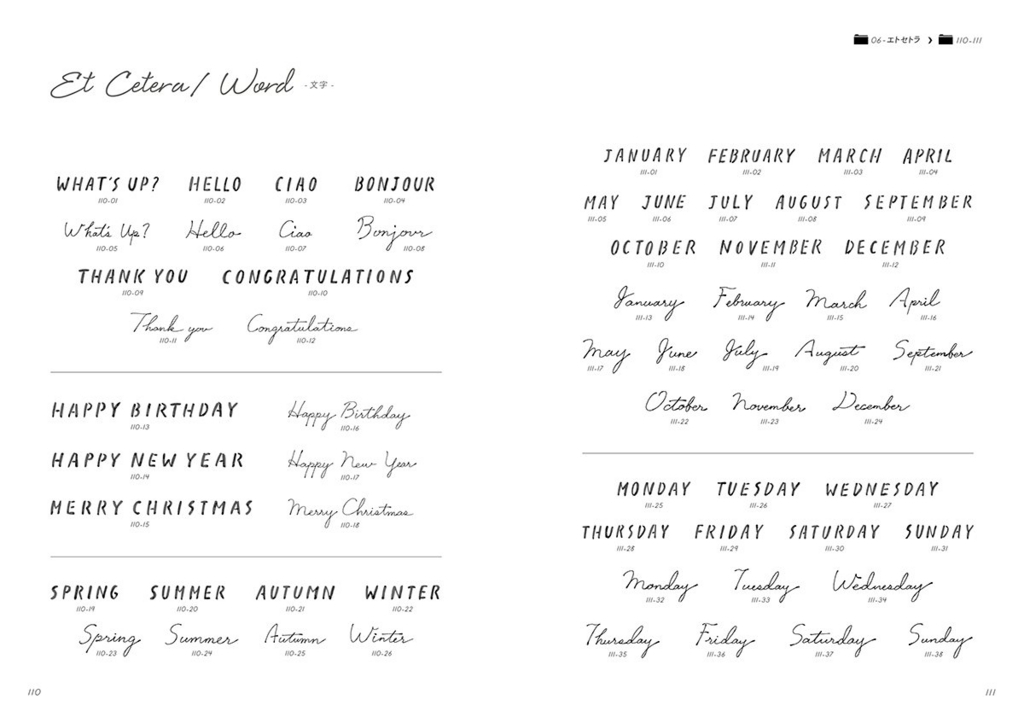 Et Cetera/ Word -文字-
WHAT'S UP? HELLO CIAO BONJOUR
110-01 110-02 110-03 110-04
What's Up? Hello Ciao Bonjour
110-05 110-06 110-07 110-08
THANK YOU CONGRATULATIONS
110-09 110-10
Thank you Congratulations
110-11 110-12
HAPPY BIRTHDAY Happy Birthday
110-13 110-16
HAPPY NEW YEAR Happy New Year
110-14 110-17
MERRY CHRISTMAS Merry Christmas
110-15 110-18
SPRING SUMMER AUTUMN WINTER
110-19 110-20 110-21 110-22
Spring Summer Autumn Winter
110-23 110-24 110-25 110-26
110
06-エトセトラ 110-111
JANUARY FEBRUARY MARCH APRIL
111-01 111-02 111-03 111-04
MAY JUNE JULY AUGUST SEPTEMBER
111-05 111-06 111-07 111-08 111-09
OCTOBER NOVEMBER DECEMBER
111-10 111-11 111-12
January February March April
111-13 111-14 111-15 111-16
May June July August September
111-17 111-18 111-19 111-20 111-21
October November December
111-22 111-23 111-24
MONDAY TUESDAY WEDNESDAY
111-25 111-26 111-27
THURSDAY FRIDAY SATURDAY SUNDAY
111-28 111-29 111-30 111-31
Monday Tuesday Wednesday
111-32 111-33 111-34
Thursday Friday Saturday Sunday
111-35 111-36 111-37 111-38
111